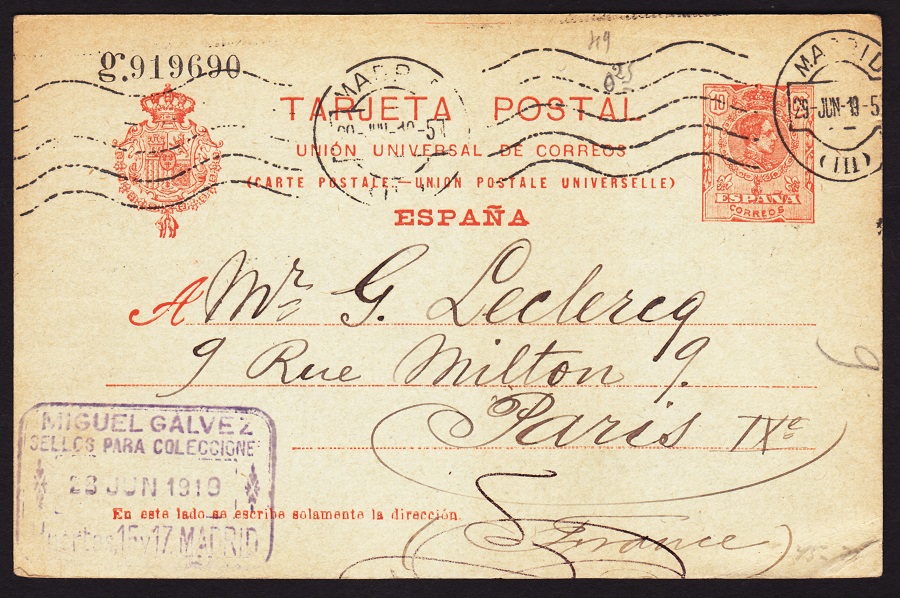 49
0.25
g.919690
MADRID
29-JUN-19-5
(III)
MADR
29-JUN-19-5
TARJETA POSTAL
10 10
UNIÓN UNIVERSAL DE CORREOS
(CARTE POSTALE.—UNION POSTALE UNIVERSELLE)
ESPAÑA
CORREOS
ESPAÑA
A Mr. G. Leclercq
9 Rue Milton 9.
9
Paris IXe
(France)
MIGUEL GALVEZ
SELLOS PARA COLECCIONE
28 JUN 1919
15 y 17. MADRID
En este lado se escribe solamente la dirección.